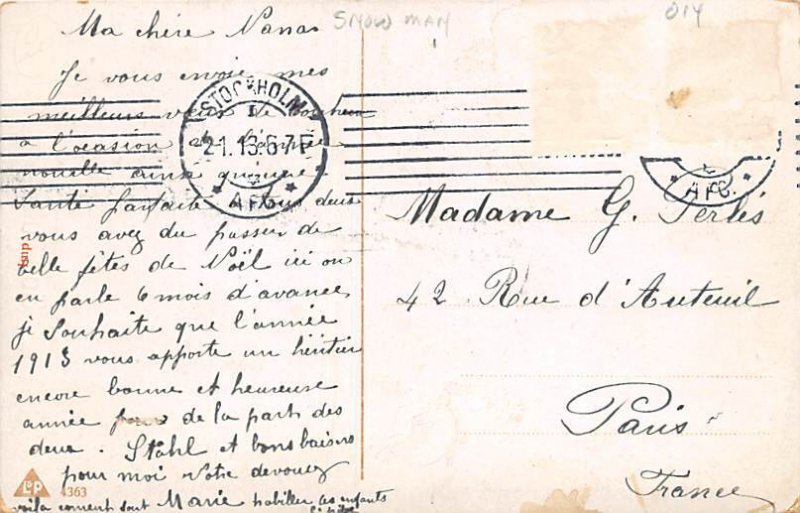 SNOW MAN
014
Ma chère Nana
Je vous envoie mes
meilleurs vœux de bonheur
a l'ocasion de l'année
nouvelle ainsi qu'une
Santé parfaite a tous deux
vous avez du passer de
belle fêtes de Noël ici on
en parle 6 mois d'avance
je Souhaite que l'année
1913 vous apporte un héritier
encore bonne et heureuse
année de la part des
deux. Stähl et bons baisers
pour moi Votre devouez
Marie
voila coment sont habiller les enfants
STOCKHOLM
1
21.1.13.6-7 F
* AFG. *
AFG. *
Madame G. Perlès
42 Rue d'Auteuil
Paris
France
L&P
4363